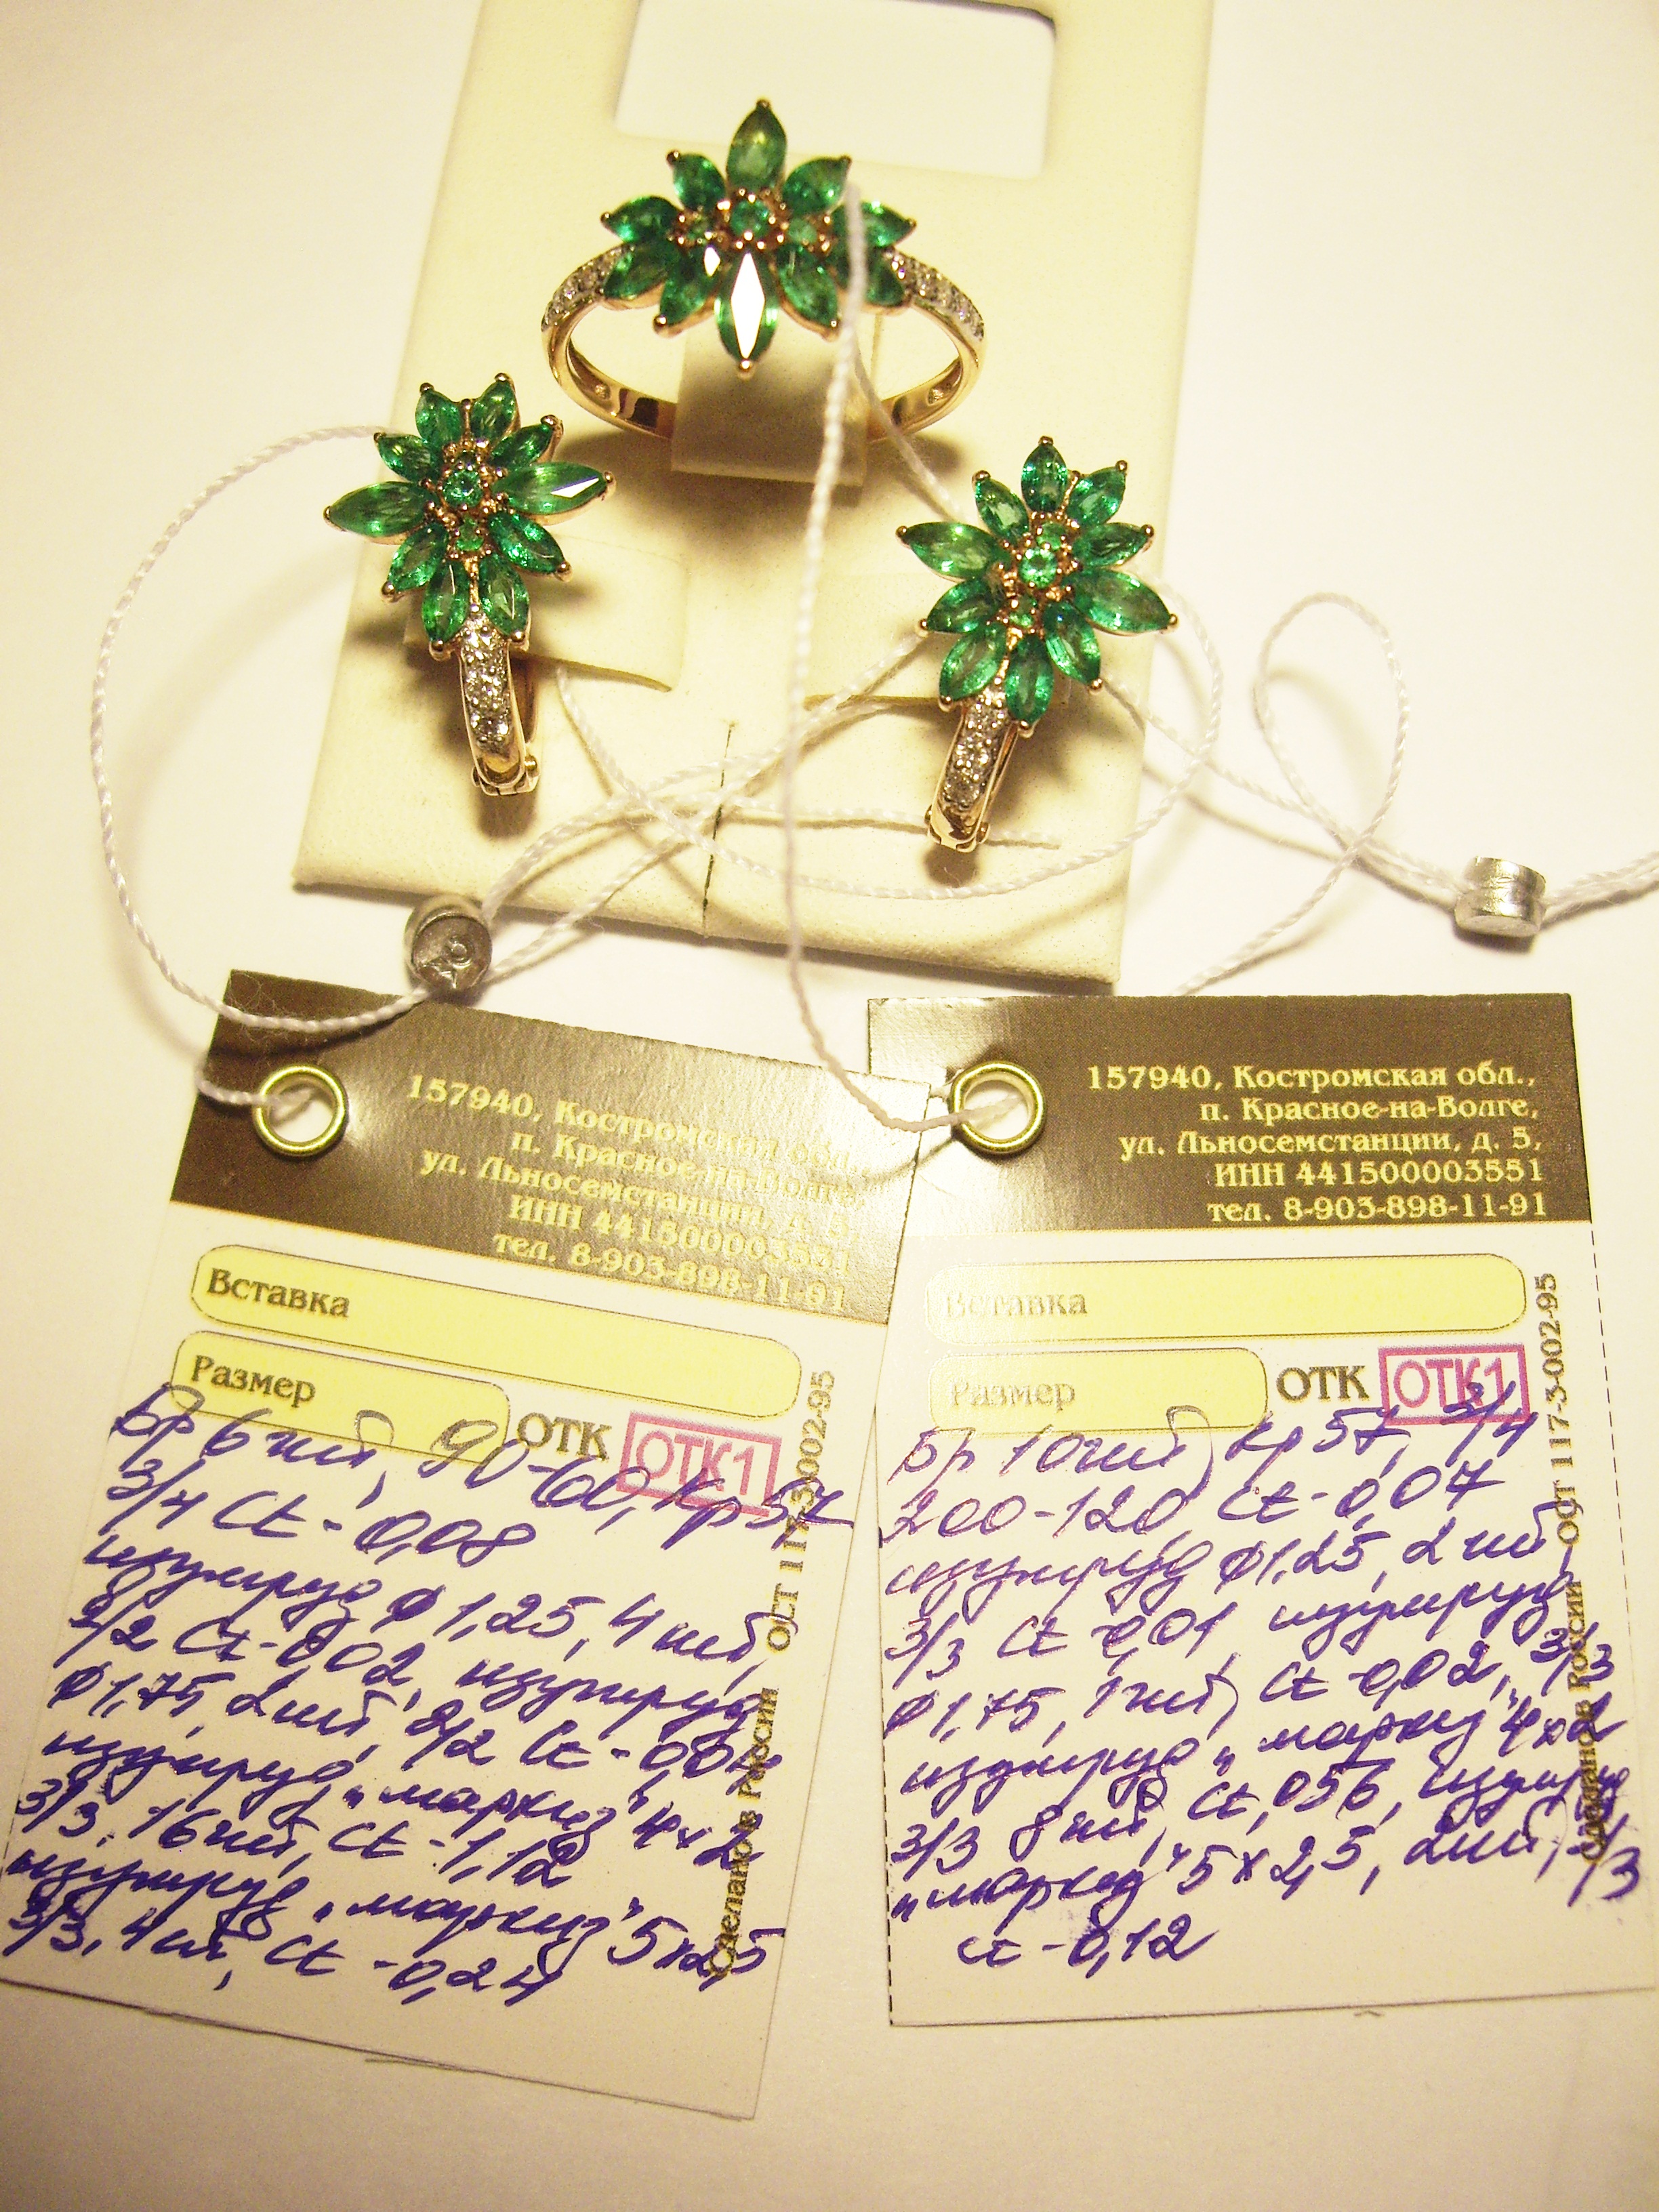 157940, Костромская обл.,
п. Красное-на-Волге,
ул. Льносемстанции, д. 5,
ИНН 441500003551
тел. 8-903-898-11-91
Вставка
Размер
ОТК
ОТК1
ОСТ 117-3-002-95
Сделано в России
Бр 6 шт, 90-60, Кр 57
3/4 Ct - 0,08
изумруд ф 1,25, 4 шт,
2/2 Ct - 0,02, изумруд
ф 1,75, 2 шт, 2/2 Ct - 0,04
изумруд „маркиз" 4х2
3/3, 16 шт, Ct - 1,12
изумруд „маркиз" 5х2,5
3/3, 4 шт, Ct - 0,24
157940, Костромская обл.,
п. Красное-на-Волге,
ул. Льносемстанции, д. 5,
ИНН 441500003551
тел. 8-903-898-11-91
Вставка
Размер
ОТК
ОТК1
ОСТ 117-3-002-95
Сделано в России
Бр 10 шт, Кр 57, 3/4
200-120 Ct - 0,07
изумруд ф 1,25, 2 шт,
3/3 Ct - 0,01, изумруд
ф 1,75, 1 шт, Ct - 0,02, 3/3
изумруд „маркиз" 4х2
3/3 8 шт, Ct, 056, изумруд
„маркиз" 5х2,5, 2 шт, 3/3
Ct - 0,12